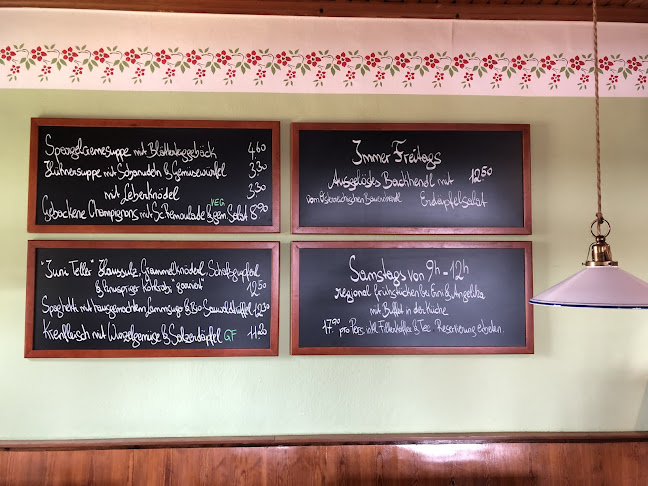 Spargelcremesuppe mit Blätterteiggebäck 4,60
Hühnersuppe mit Schöberln & Gemüsewürfel 3,30
mit Leberknödel 3,30
VEG
Gebackene Champignons mit Sc. Remoulade & gem. Salat 8,90
Immer Freitags
Ausgelöstes Backhendl mit 12,50
vom Österreichischen Bauernhendl Erdäpfelsalat
"Juni Teller" Haussulz, Grammelknöderl, Schafgupferl
& knuspriger Kohlrabi "paniert" 12,50
Spaghetti mit hausgemachtem Lammsugo & Bio 12,50
Krenfleisch mit Wurzelgemüse & Salzerdäpfel GF 11,20
Samstags von 9h - 12h
regional frühstücken bei Erni & Angelika
mit Buffet in der Küche
17,90 pro Pers. inkl. Filterkaffee & Tee Reservierung erbeten.